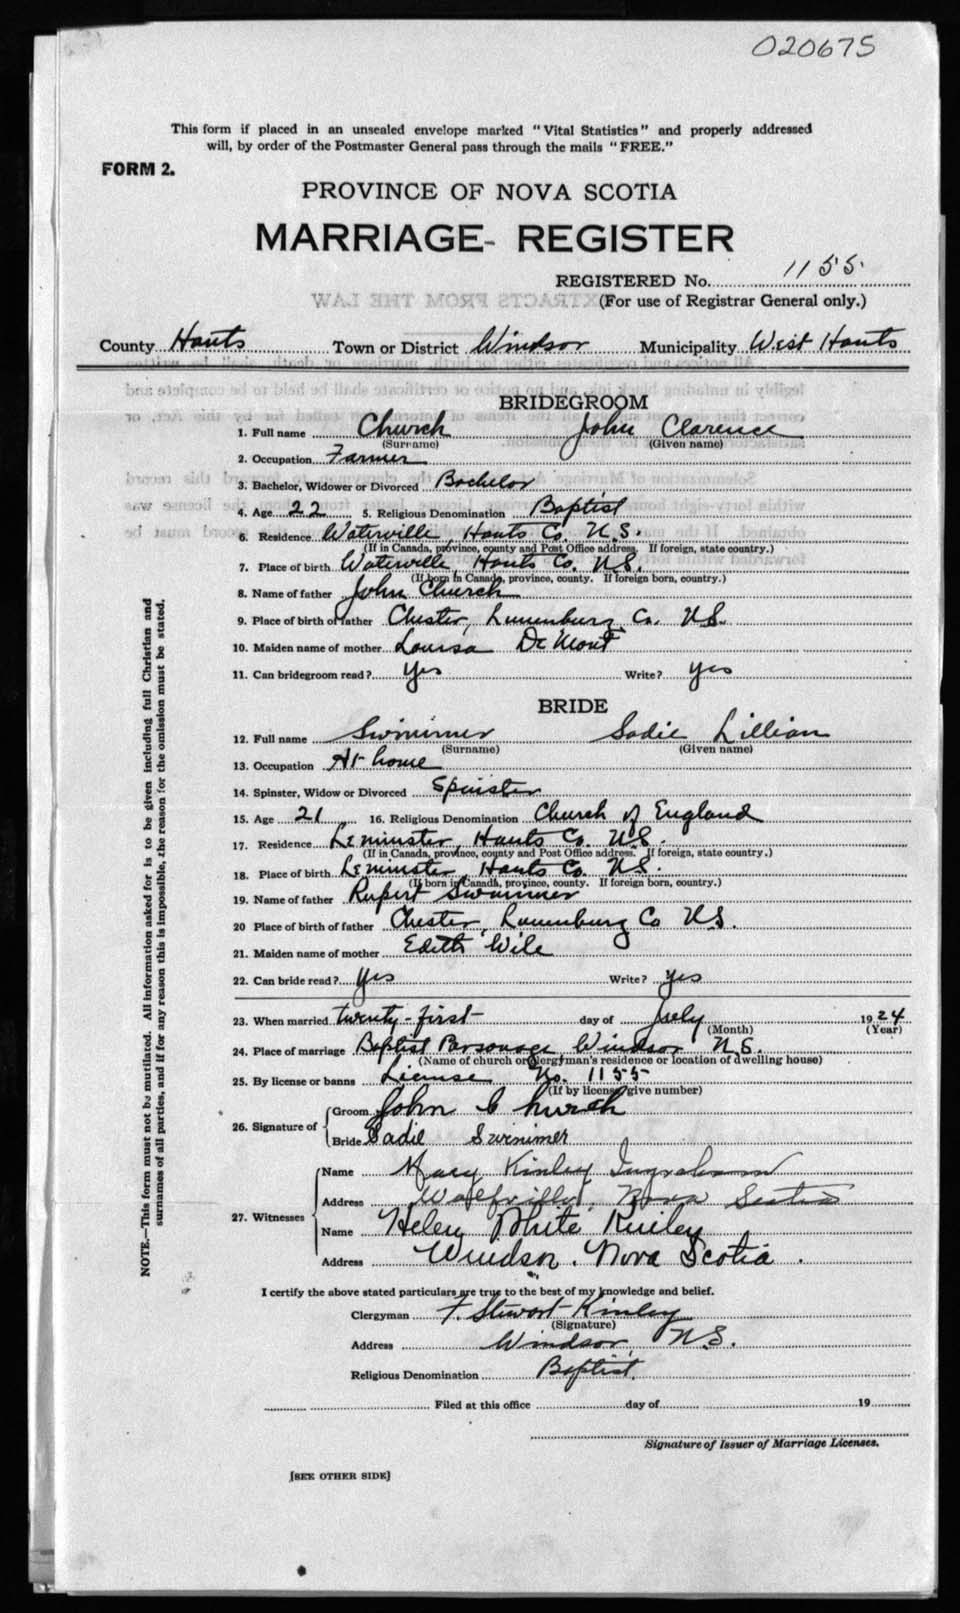 020675
This form if placed in an unsealed envelope marked "Vital Statistics" and properly addressed
will, by order of the Postmaster General pass through the mails "FREE."
FORM 2.
PROVINCE OF NOVA SCOTIA
MARRIAGE- REGISTER
REGISTERED No. 1155
(For use of Registrar General only.)
County Hants Town or District Windsor Municipality West Hants
BRIDEGROOM
1. Full name Church John Clarence
(Surname) (Given name)
2. Occupation Farmer
3. Bachelor, Widower or Divorced Bachelor
4. Age 22 5. Religious Denomination Baptist
6. Residence Waterville, Hants Co. N.S.
(If in Canada, province, county and Post Office address. If foreign, state country.)
7. Place of birth Waterville, Hants Co. N.S.
(If born in Canada, province, county. If foreign born, country.)
8. Name of father John Church
9. Place of birth of father Chester, Lunenburg Co. N.S.
10. Maiden name of mother Louisa De Mont
11. Can bridegroom read? Yes Write? Yes
BRIDE
12. Full name Swinimer Sadie Lillian
(Surname) (Given name)
13. Occupation At home
14. Spinster, Widow or Divorced Spinster
15. Age 21 16. Religious Denomination Church of England
17. Residence Leminster, Hants Co. N.S.
(If in Canada, province, county and Post Office address. If foreign, state country.)
18. Place of birth Leminster, Hants Co. N.S.
(If born in Canada, province, county. If foreign born, country.)
19. Name of father Rupert Swinimer
20 Place of birth of father Chester, Lunenburg Co N.S.
21. Maiden name of mother Edith Wile
22. Can bride read? Yes Write? Yes
23. When married twenty-first day of July 1924
(Month) (Year)
24. Place of marriage Baptist Parsonage Windsor N.S.
(Name of church or clergyman's residence or location of dwelling house)
25. By license or banns License No. 1155
(If by license, give number)
26. Signature of Groom John C hurch
Bride Sadie Swinimer
27. Witnesses Name Mary Kinley Ingraham
Address Wolfville, Nova Scotia
Name Helen White Kinley
Address Windsor, Nova Scotia.
I certify the above stated particulars are true to the best of my knowledge and belief.
Clergyman F. Stewart Kinley
(Signature)
Address Windsor, N.S.
Religious Denomination Baptist.
Filed at this office day of 19
Signature of Issuer of Marriage Licenses.
[SEE OTHER SIDE]
NOTE.—This form must not be mutilated. All information asked for is to be given including full Christian and
surnames of all parties, and if for any reason this is impossible, the reason for the omission must be stated.